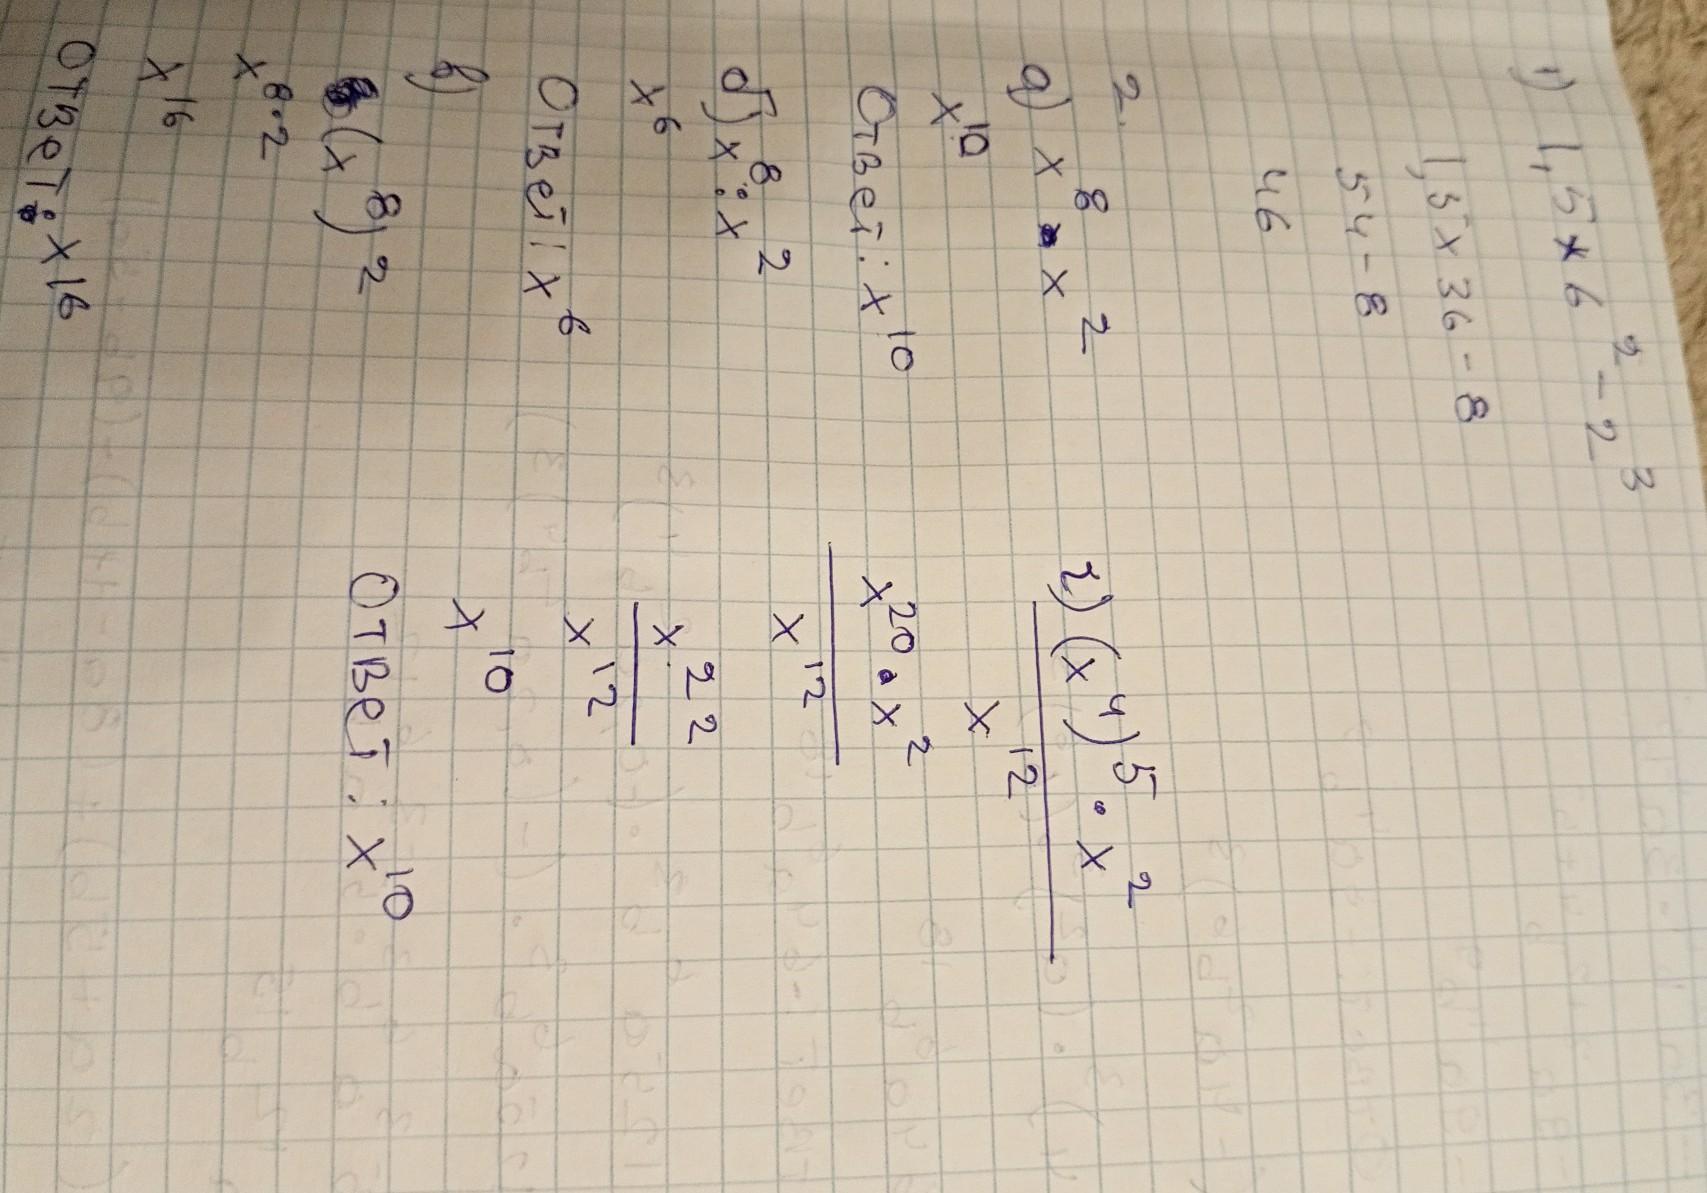 1) 1,5 × 6² - 2³
1,5 × 36 - 8
54 - 8
46
2.
а) x⁸ · x²
x¹⁰
Ответ: x¹⁰
б) x⁸ : x²
x⁶
Ответ: x⁶
в)
(x⁸)²
x⁸·²
x¹⁶
Ответ: x16
г) (x⁴)⁵ · x²
x¹²
x²⁰ · x²
x¹²
x²²
x¹²
x¹⁰
Ответ: x¹⁰